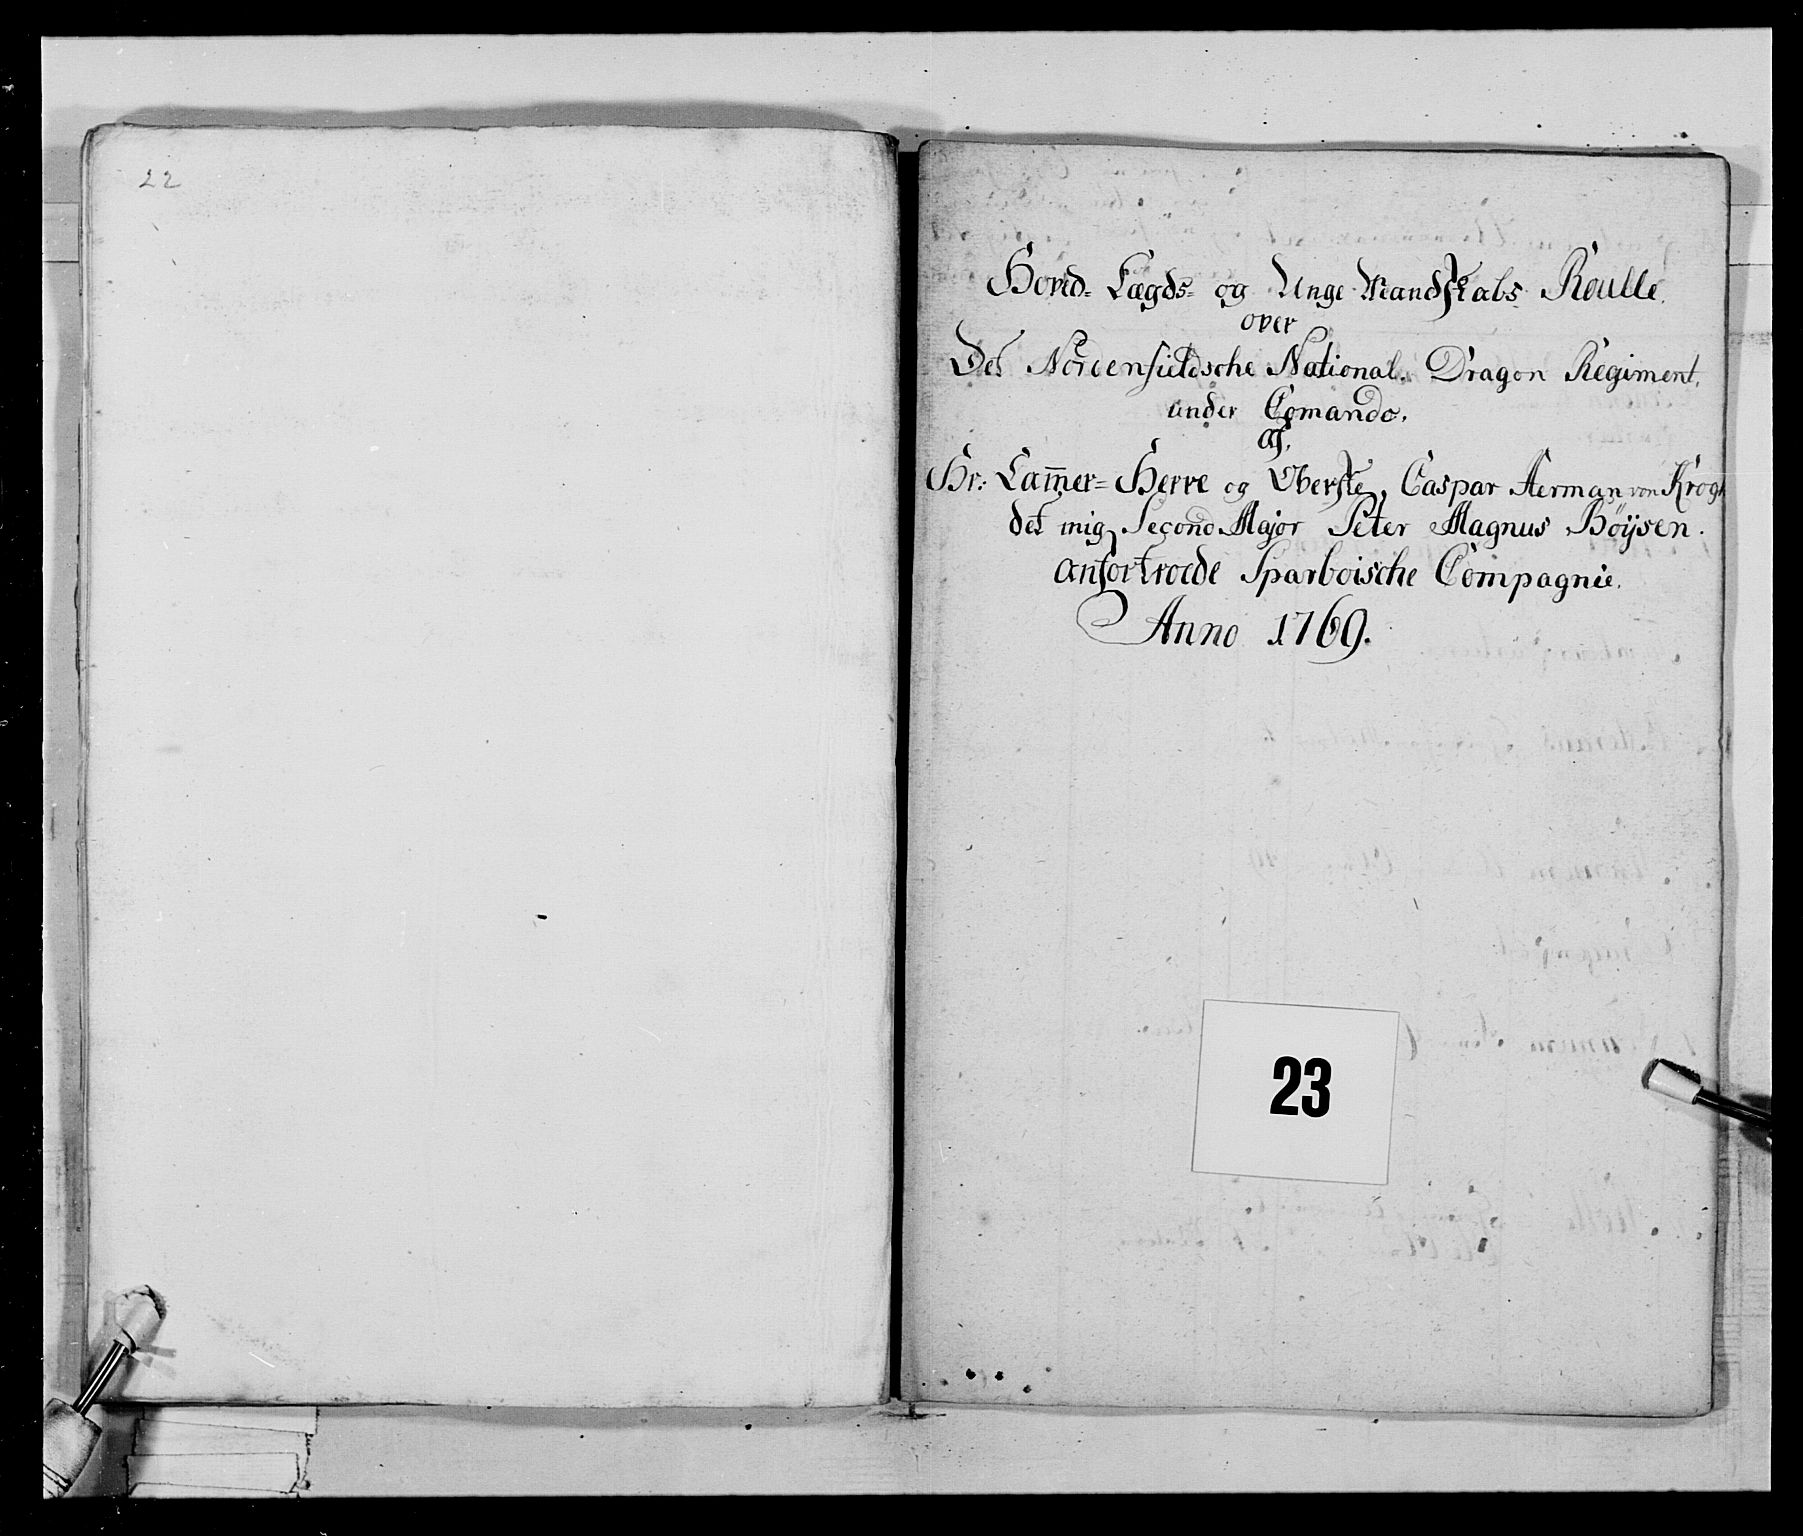 22
Hoved- Lægds- og Unge Mandskabs Roulle.
over
Det Nordenfieldsche National. Dragon Regiment.
under Comando.
af.
Hr: Cam̅er-Herre og Oberste, Caspar Herman von Krogh
det mig Second Major Peter Magnus Böÿsen.
anfortroede Sparboische Compagnie.
Anno 1769.
23